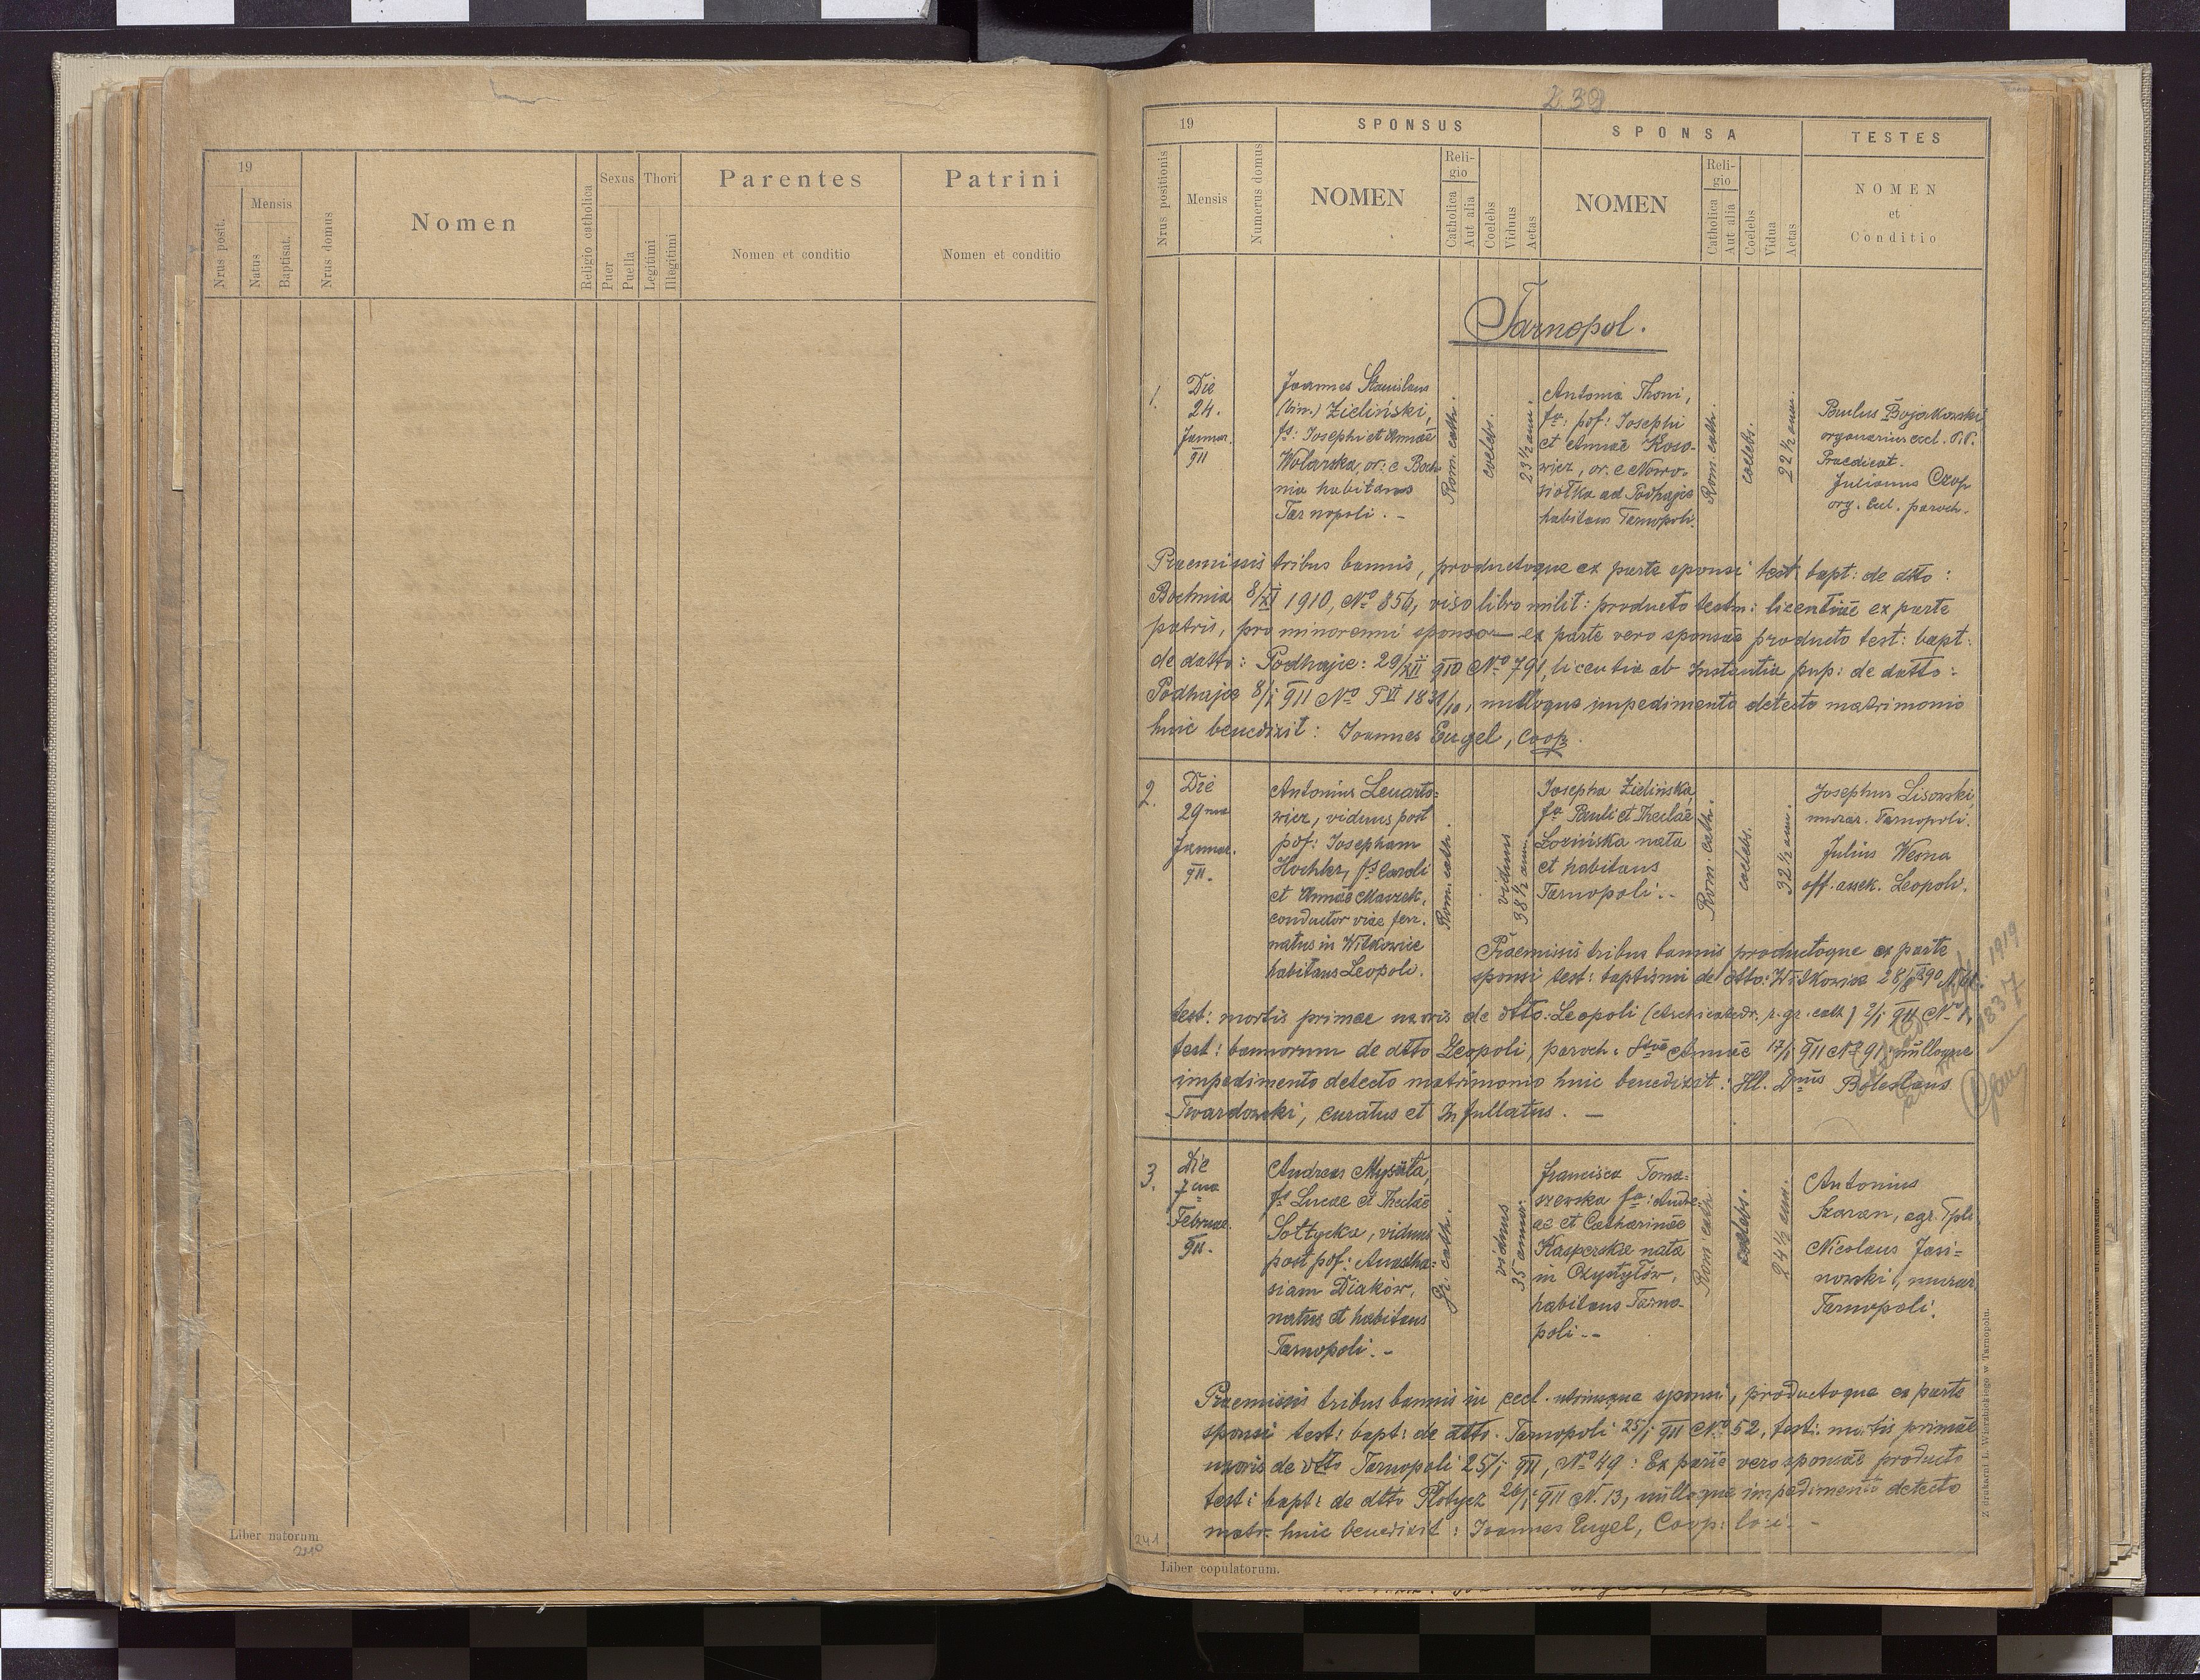 19
Nrus posit.
Mensis
Natus
Baptisat.
Nrus domus
Nomen
Religio catholica
Sexus
Puer
Puella
Thori
Legitimi
Illegitimi
Parentes
Nomen et conditio
Patrini
Nomen et conditio
Liber natorum
240
239
19
SPONSUS
SPONSA
TESTES
Nrus positionis
Mensis
Numerus domus
NOMEN
Reli-
gio
Catholica
Aut alia
Coelebs
Viduus
Aetas
NOMEN
Reli-
gio
Catholica
Aut alia
Coelebs
Vidua
Aetas
NOMEN
et
Conditio
Tarnopol.
1.
Die
24.
Januar.
911
Joannes Stanislaus
(bin.) Zieliński,
fs: Josephi et Annae
Wolarska, or: e Boch-
nia habitans
Tarnopoli. -
Rom. cath.
coelebs.
23 1/2 ann.
Antonia Thoni,
fa: pof: Josephi
et Annae Koso-
wicz, or. e Nowo-
siołka ad Podhajce
habitans Tarnopoli.
Rom. cath.
coelebs.
22 1/2 ann.
Paulus Bojarkowski
organarius eccl. P.P.
Praedicat.
Julianus Czop
org. eccl. paroch.
Praemissis tribus bannis, productoque ex parte sponsi test: bapt: de dtto:
Bochnia 8/XI 1910, No 856, viso libro milit: producto testm: licentiae ex parte
patris, pro minorenni sponso — ex parte vero sponsae producto test: bapt:
de datto: Podhajce: 29/XII 910 No 791, licentia ab Instantia pup: de datto:
Podhajce 8/I 911 No P VI 1831/10, nulloque impedimento detecto matrimonio
huic benedixit: Joannes Engel, Coop.
2.
Die
29na
Januar.
911.
Antonius Lenarto-
wicz, viduus post
pof: Josepham
Hochler, fs Caroli
et Annae Marzek,
conductor viae ferr.
natus in Witkowice
habitans Leopoli.
Rom. cath.
viduus
38 1/2 ann.
Josepha Zielińska,
fa Pauli et Theclae
Łozińska nata
et habitans
Tarnopoli. -
Rom. cath.
coelebs.
32 1/2 ann.
Josephus Lisowski,
murar. Tarnopoli.
Julius Wesna
off. assek. Leopoli.
Praemissis tribus bannis productoque ex parte
sponsi test: baptismi de dtto: Witkowice 28/8 890
test: mortis primae uxoris de dtto: Leopoli (Archicatedr. r. gr. cath) 2/I 911 No 1,
test: bannorum de dtto Leopoli, paroch: Stae Annae 17/I 911 No 91, nulloque
impedimento detecto matrimonio huic benedixit: Ill. Dnus Boleslaus
Twardowski, curatus et Infullatus. —
1919
1837
3.
Die
7ma
Februar.
911.
Andreas Mysuła,
fs Lucae et Theclae
Sołtycka, viduus
post pof: Anastha-
siam Diaków,
natus et habitans
Tarnopoli. -
Gr. cath.
viduus
35 annor.
Francisca Toma-
szewska fa: Andre-
ae et Catharinae
Kasperska nata
in Czystyłów,
habitans Tarno-
poli. -
Rom. cath.
coelebs.
24 1/2 ann.
Antonius
Szaran, agr. Tpli.
Nicolaus Jasi-
nowski, murar.
Tarnopoli.
Praemissis tribus bannis in eccl. utriusque sponsi, productoque ex parte
sponsi test: bapt: de dtto. Tarnopoli 25/I 911 No 52, test: mortis primae
uxoris de dtto Tarnopoli 25/I 911, No 49: Ex parte vero sponsae producto
test: bapt: de dtto Płotycz 26/I 911 N. 13, nulloque impedimento detecto
matr. huic benedixit: Joannes Engel, Coop: loci. -
241
Liber copulatorum.
Z drukarni L. Wierzbickiego w Tarnopolu.